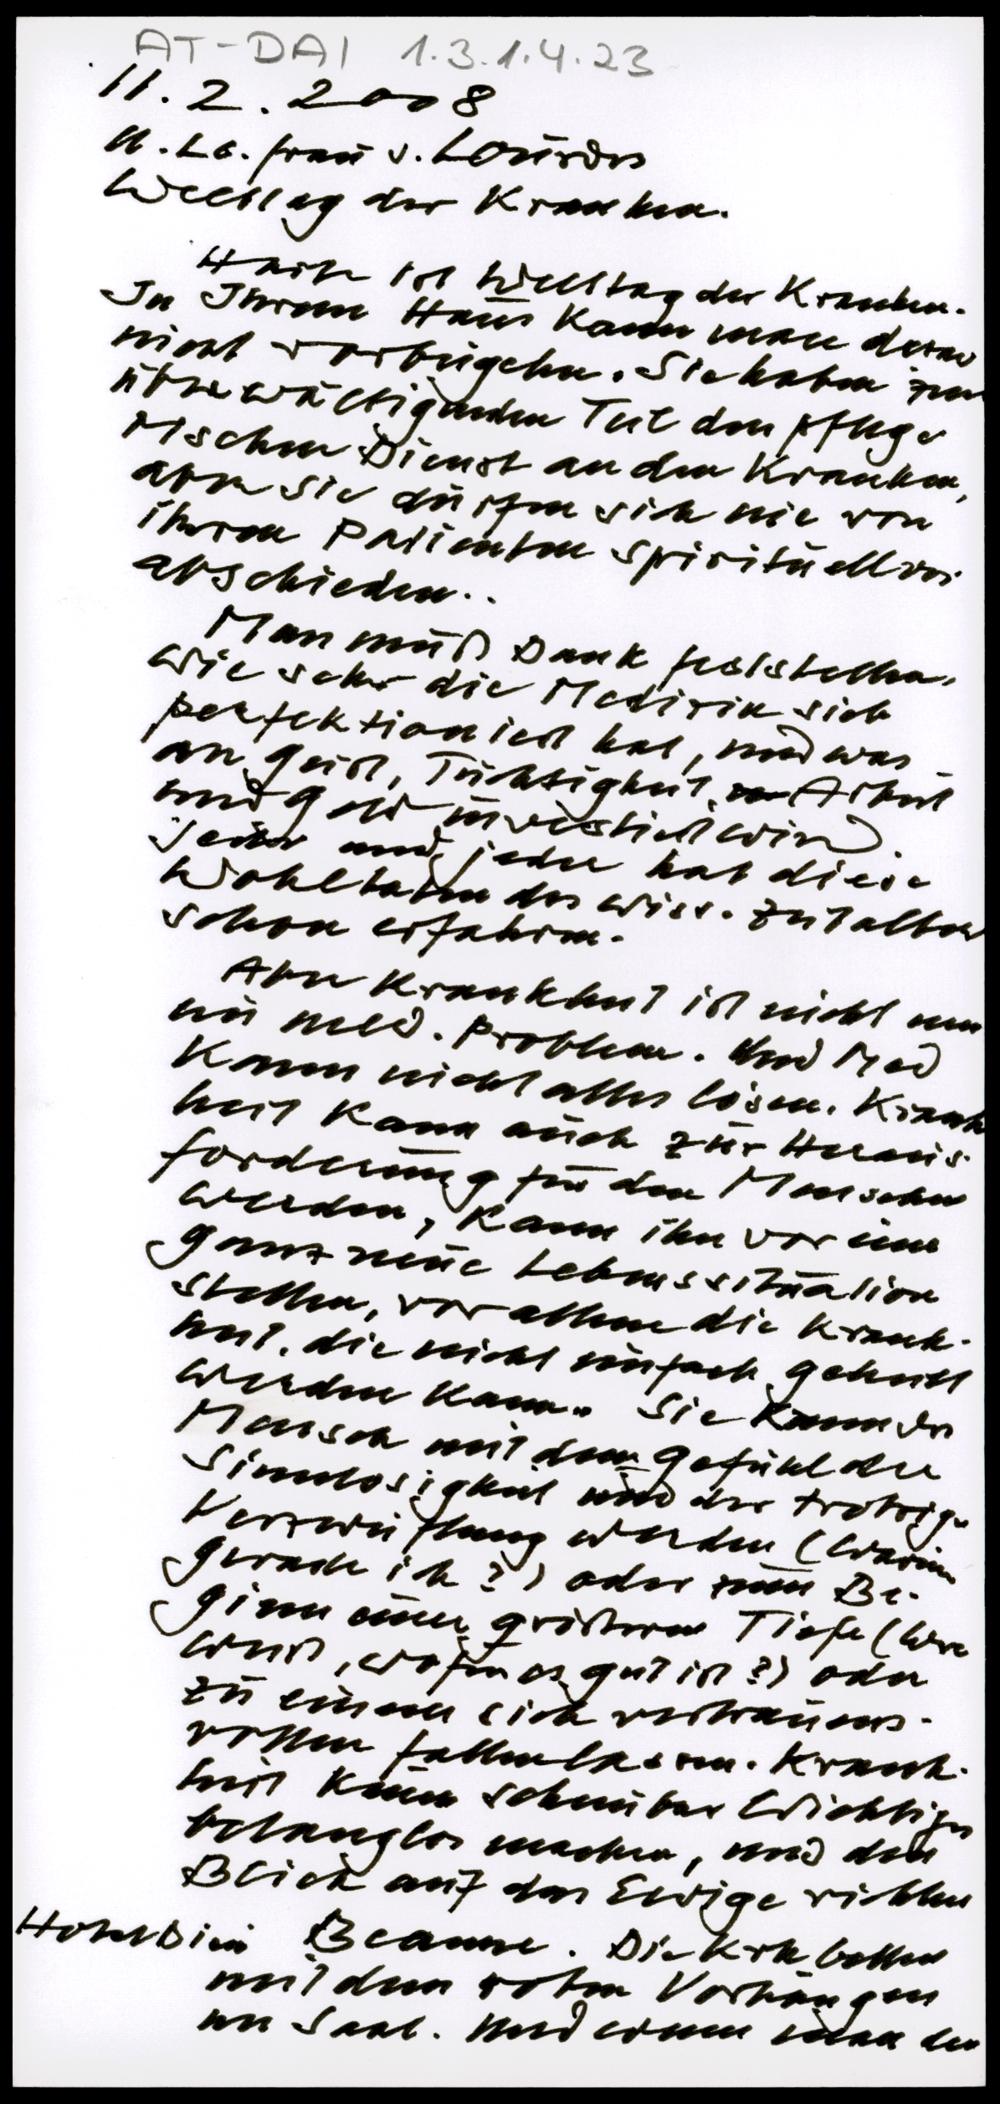 AT-DAI 1.3.1.4.23
11.2.2008
U. Lb. Frau v. Lourdes
Welttag der Kranken.
Heute ist Welttag der Kranken.
In Ihrem Haus kann man daran
nicht vorbeigehen. Sie haben zum
überwältigenden Teil den pflege
rischen Dienst an den Kranken,
aber Sie dürfen sich nie von
ihren Patienten spirituell ver
abschieden..
Man muß Dank feststellen,
wie sehr die Medizin sich
perfektioniert hat, und was
an Geist, Tüchtigkeit, Arbeit
und Geld investiert wird.
Jeder und jede hat diese
Wohltaten des wiss. Zeitalters
schon erfahren.
Aber Krankheit ist nicht nur
ein med. Problem. Und Med
kann nicht alles lösen. Krank
heit kann auch zur Heraus-
forderung für den Menschen
werden, kann ihn vor eine
ganz neue Lebenssituation
stellen, vor allem die Krank-
heit, die nicht einfach geheilt
werden kann. Sie kann den
Mensch mit dem Gefühl der
Sinnlosigkeit und der trotzigen
Verzweiflung werden (Warum
gerade ich?) oder zum Be-
ginn einer größeren Tiefe (Wer
weiß, wofür es gut ist?) oder
zu einem sich vertrauens-
vollen fallenlassen. Krank-
heit kann scheinbar Wichtiges
belanglos machen, und den
Blick auf das Ewige richten
Hotel Dieu Beaune. Die Krk betten
mit den roten Vorhängen
im Saal. Und wenn man den